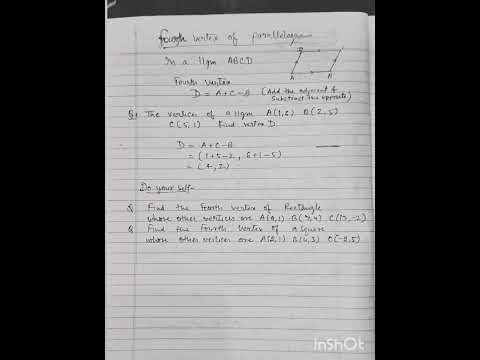 Fourth vertex of parallelogram
In a ||gm ABCD
Fourth vertex
D = A+C-B (Add the adjacent & Substract the opposite)
D
A B
Q The vertices of a ||gm A(1,6) B(2,5)
C(5,1) find vertex D
D = A+C-B
= (1+5-2, 6+1-5)
= (4,2)
Do your self-
Q Find the fourth vertex of Rectangle
whose other vertices are
Q Find the fourth vertex of a square
whose other vertices are A(2,1) B(6,3) C(-2,5)
InShOt